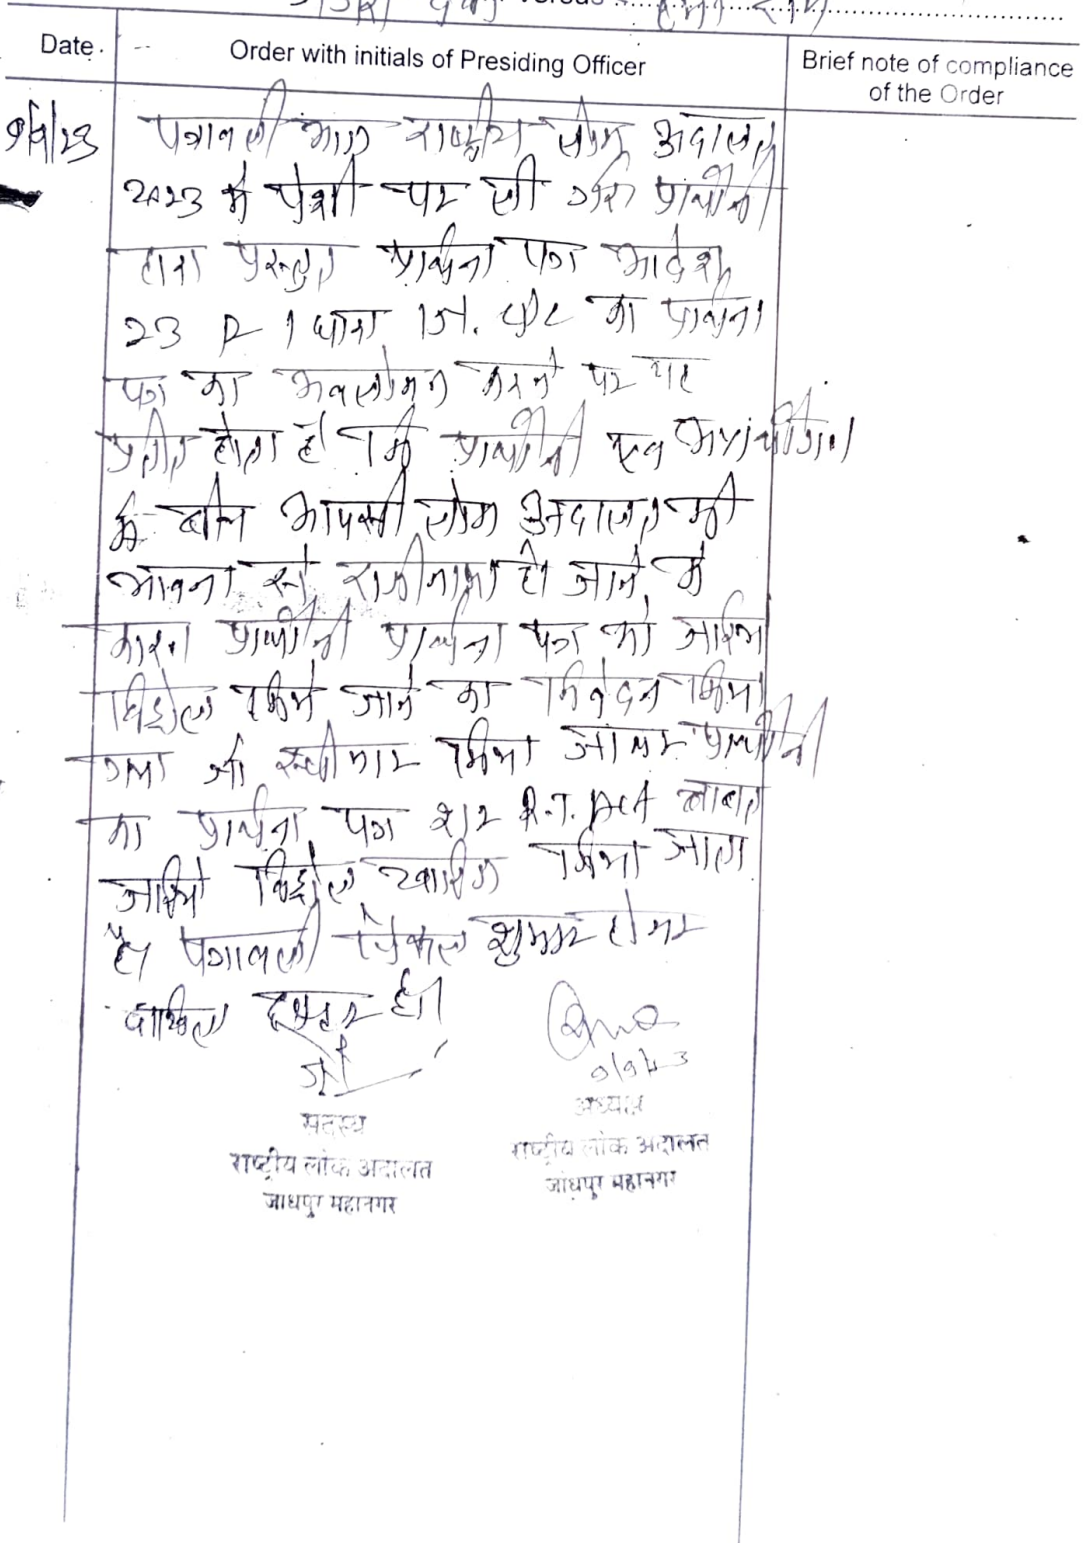 Versus
Date.
Order with initials of Presiding Officer
Brief note of compliance
of the Order
9/9/23
पत्रावली आज राष्ट्रीय लोक अदालत
2023 में पेशी पर ली गई। प्रार्थीनी
द्वारा प्रस्तुत प्रार्थना पत्र आदेश
23 R 1 धारा CPC का प्रार्थना
पत्र का अवलोकन करने पर यह
प्रतीत होता है कि प्रार्थीनी एव अप्रार्थीगण
के बीच आपसी लोक अदालत की
भावना से राजीनामा हो जाने के
कारण प्रार्थीनी प्रार्थना पत्र को जरिये
विड्रोल किये जाने का निवेदन किया
गया जो स्वीकार किया जाकर प्रार्थीनी
का प्रार्थना पत्र R.T. Act बाबत
जरिये विड्रोल खारिज किया जाता
है। पत्रावली फैसल शुमार होकर
दाखिल दफ्तर हो।
9/9/23
सदस्य
अध्यक्ष
राष्ट्रीय लोक अदालत
राष्ट्रीय लोक अदालत
जोधपुर महानगर
जोधपुर महानगर